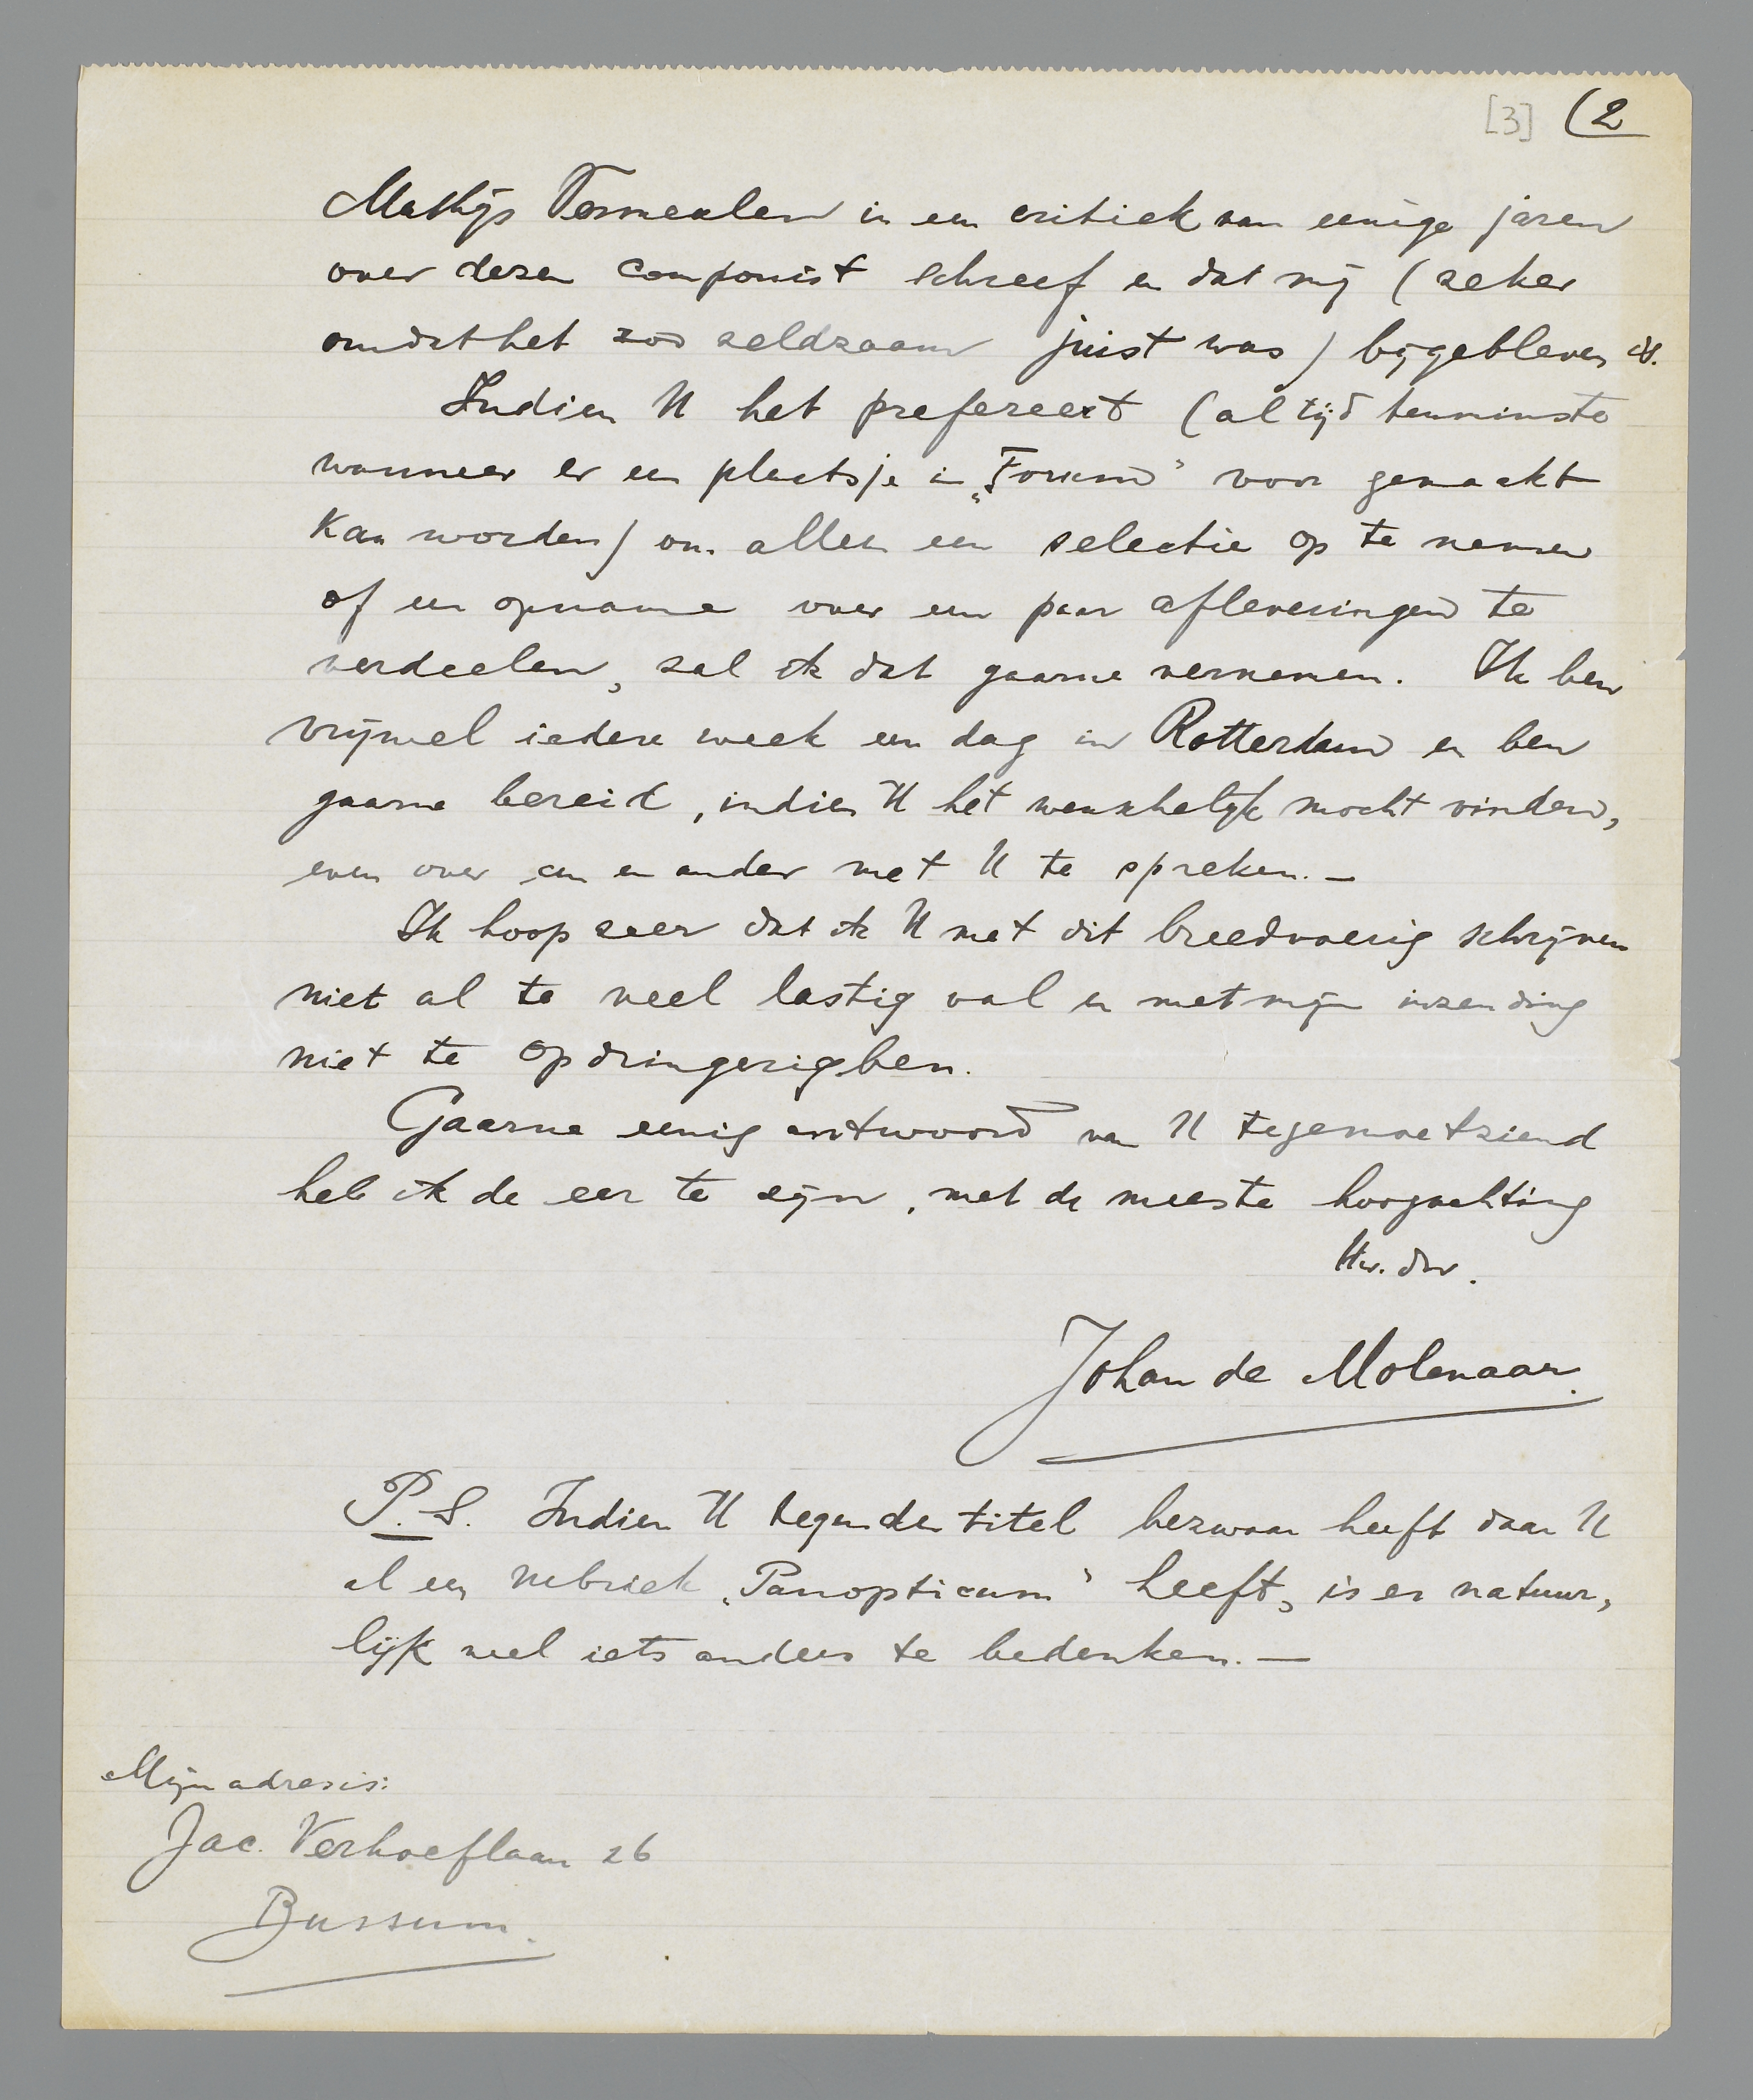 [3] (2
Mathijs Vermeulen in een critiek van eenige jaren
over dezen componist schreef en dat mij (zeker
omdat het zóó zeldzaam juist was) bijgebleven is.
Indien U het prefereert (altijd tenminste
wanneer er een plaatsje in „Forum" voor gemaakt
kan worden) om alleen een selectie op te nemen
of een opname over een paar afleveringen te
verdeelen, zal ik dat gaarne vernemen. Ik ben
vrijwel iedere week een dag in Rotterdam en ben
gaarne bereid, indien U het wenschelijk mocht vinden,
even over een en ander met U te spreken.—
Ik hoop zeer dat ik U met dit breedvoerig schrijven
niet al te veel lastig val en met mijn inzending
niet te opdringerig ben.
Gaarne eenig antwoord van U tegemoetziend
heb ik de eer te zijn, met de meeste hoogachting
Uw. dw.
Johan de Molenaar.
P.S. Indien U tegen den titel bezwaar heeft daar U
al een rubriek „Panopticum" heeft, is er natuur,
lijk wel iets anders te bedenken.—
Mijn adres is:
Jac. Verhoeflaan 26
Bussum.